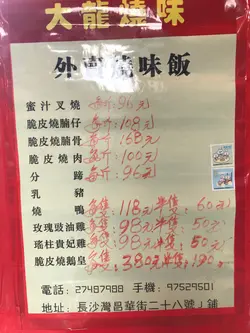 大龍燒味
外賣燒味飯
蜜汁叉燒 每斤96元
脆皮燒腩仔 每斤108元
脆皮燒腩骨 每斤168元
脆皮燒肉 每斤100元
分蹄 每斤96元
乳豬
燒鴨 每隻118元 半隻60元
玫瑰豉油雞 每隻98元 半隻50元
瑤柱貴妃雞 每隻98元 半隻50元
脆皮燒鵝皇 每隻380元 半隻190元
電話：27487988 手機：97529501
地址：長沙灣邑華街二十八號J鋪